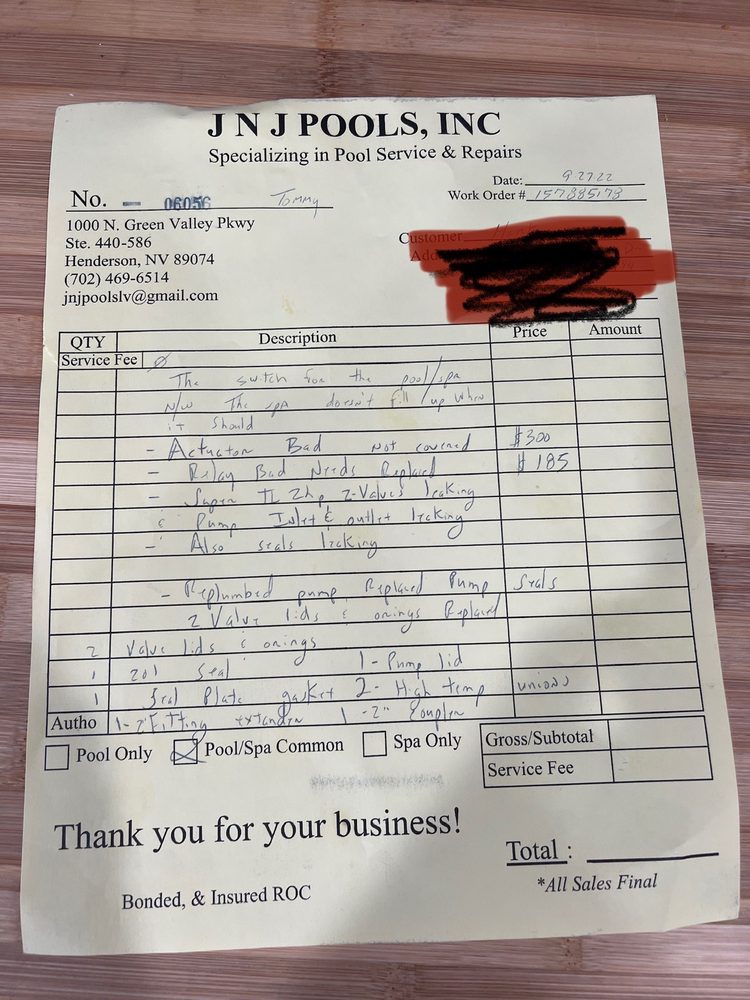 J N J POOLS, INC
Specializing in Pool Service & Repairs
Date: 92722
No. - 06056 Tommy
Work Order # 157885178
1000 N. Green Valley Pkwy
Ste. 440-586
Henderson, NV 89074
(702) 469-6514
jnjpoolslv@gmail.com
Customer
QTY Description Price Amount
Service Fee Ø
The switch for the pool/spa
N/W The spa doesn't fill up when
it should
- Actuator Bad Not covered $300
- Relay Bad Needs Replaced $185
- Super II 2hp 2-Valves leaking
& Pump Inlet & outlet leaking
- Also seals leaking
- Replumbed pump, Replaced Pump Seals
2 Valve lids & orings Replaced
2 Valve lids & orings
1 201 Seal 1- Pump lid
1 Seal Plate gasket 2- High temp unions
Autho 1-2" Fitting extender 1-2" Coupler
Pool Only Pool/Spa Common Spa Only
Gross/Subtotal
Service Fee
Thank you for your business!
Total :
*All Sales Final
Bonded, & Insured ROC